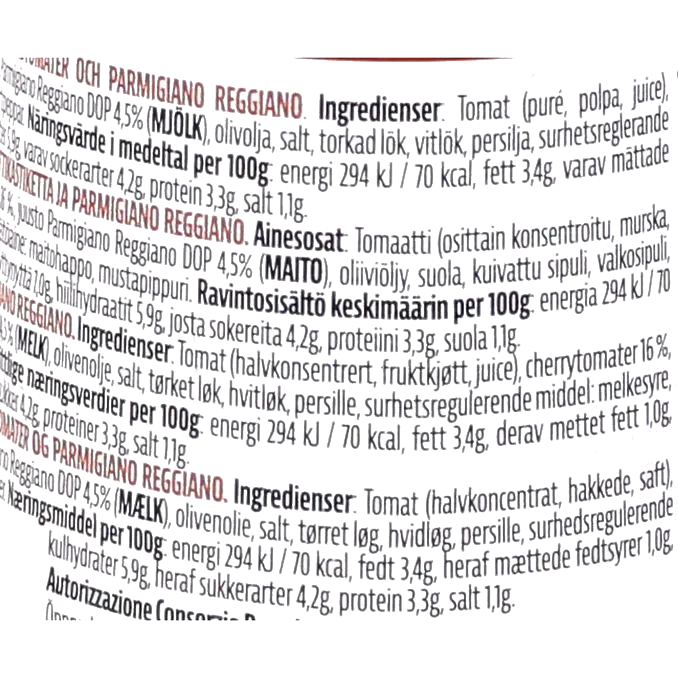 OCH PARMIGIANO REGGIANO. Ingredienser: Tomat (puré, polpa, juice),
Reggiano DOP 4,5% (MJÖLK), olivolja, salt, torkad lök, vitlök, persilja, surhetsreglerande
Näringsvärde i medeltal per 100g: energi 294 kJ / 70 kcal, fett 3,4g, varav mättade
5,9g, varav sockerarter 4,2g, protein 3,3g, salt 1,1g.
JA PARMIGIANO REGGIANO. Ainesosat: Tomaatti (osittain konsentroitu, murska,
juusto Parmigiano Reggiano DOP 4,5% (MAITO), oliiviöljy, suola, kuivattu sipuli, valkosipuli,
maitohappo, mustapippuri. Ravintosisältö keskimäärin per 100g: energia 294 kJ / 70
1,0g, hiilihydraatit 5,9g, josta sokereita 4,2g, proteiini 3,3g, suola 1,1g.
REGGIANO. Ingredienser: Tomat (halvkonsentrert, fruktkjøtt, juice), cherrytomater 16%,
(MELK), olivenolje, salt, tørket løk, hvitløk, persille, surhetsregulerende middel: melkesyre,
næringsverdier per 100g: energi 294 kJ / 70 kcal, fett 3,4g, derav mettet fett 1,0g,
4,2g, proteiner 3,3g, salt 1,1g.
OG PARMIGIANO REGGIANO. Ingredienser: Tomat (halvkoncentrat, hakkede, saft),
Reggiano DOP 4,5% (MÆLK), olivenolie, salt, tørret løg, hvidløg, persille, surhedsregulerende
Næringsmiddel per 100g: energi 294 kJ / 70 kcal, fedt 3,4g, heraf mættede fedtsyrer 1,0g,
kulhydrater 5,9g, heraf sukkerarter 4,2g, protein 3,3g, salt 1,1g.
Autorizzazione Consorzio